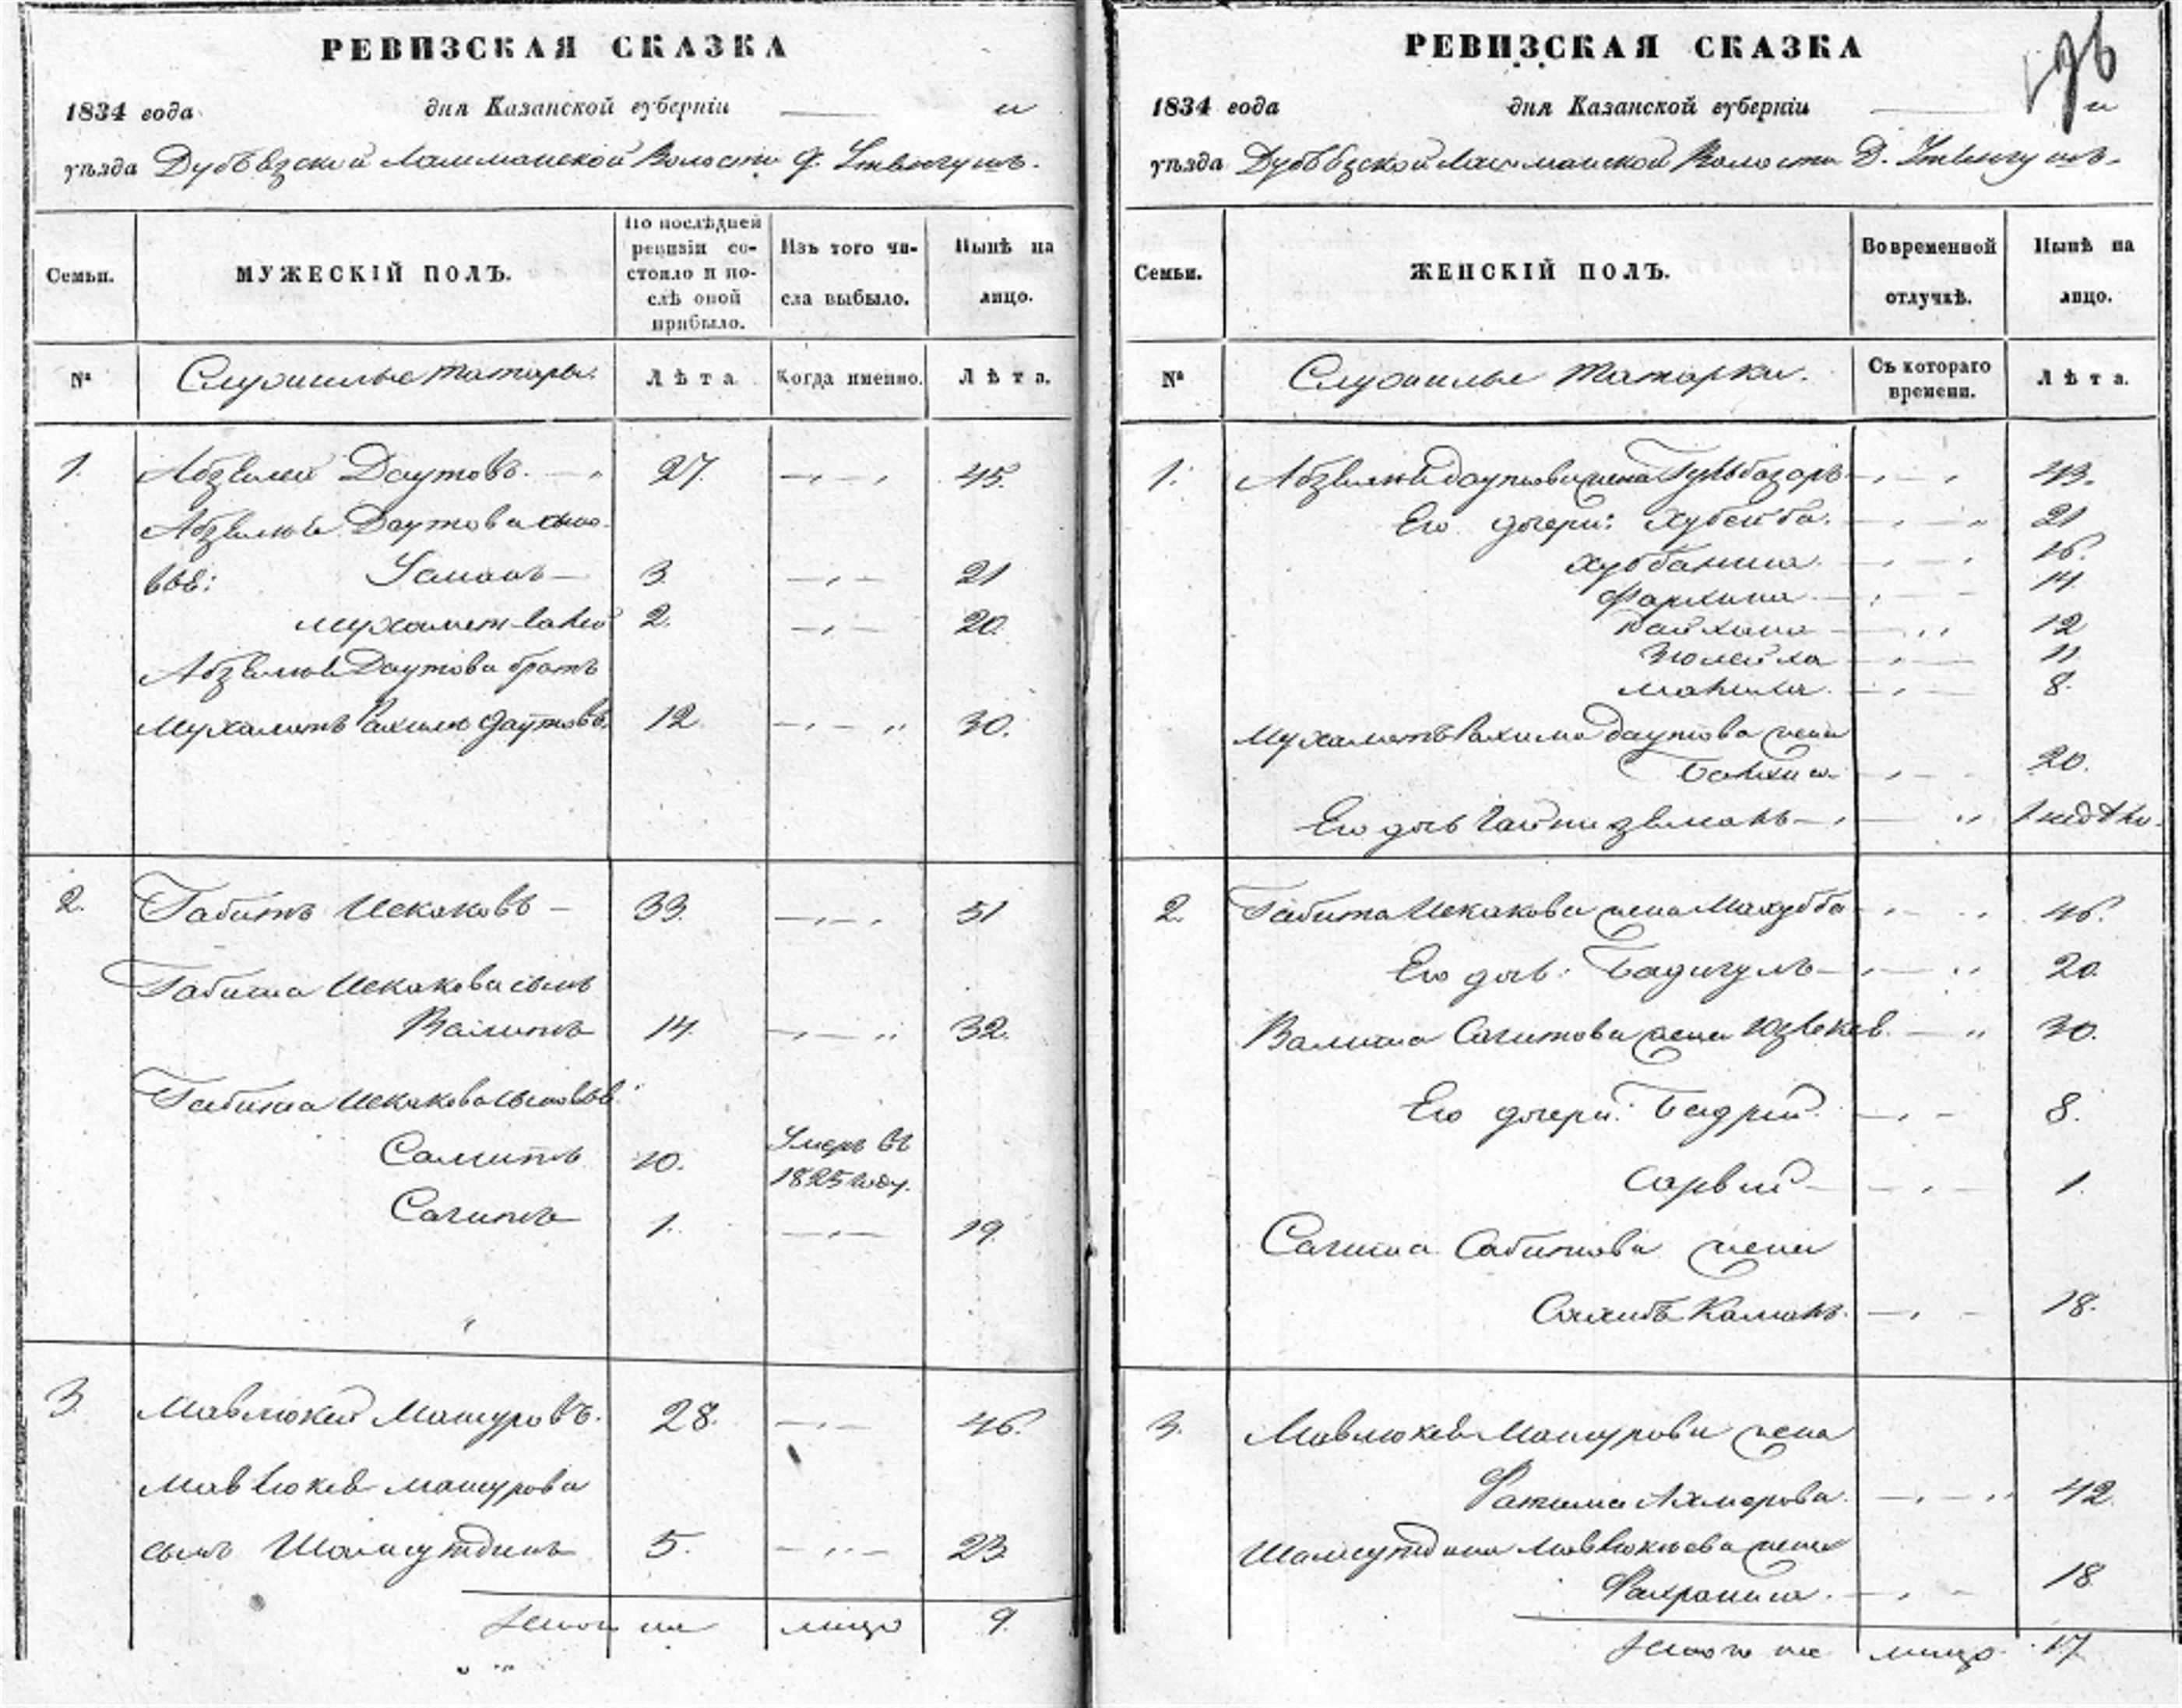 РЕВИЗСКАЯ СКАЗКА
1834 года дня Казанской губерніи и
уѣзда Дубѣвзской Лашманской Волости
Семьи. МУЖЕСКІЙ ПОЛЪ. По послѣдней ревизіи состояло и послѣ оной прибыло. Изъ того числа выбыло. Нынѣ на лицо.
№ Служилые татары. Лѣта. Когда именно. Лѣта.
1. Абзелей Даутовъ. 27. 45.
Абзелея Даутова сыно-
вье: Усманъ 3. 21
Мухамет 2. 20.
Абзелея Даутова братъ
Мухаметъ Рахимъ Даутовъ. 12. 30.
2. Габитъ Искаковъ 33. 51
Габита Искакова сынъ
Валитъ 14. 32.
Габита Искакова сыновье:
Салитъ 10. Умеръ въ 1825 году.
Сагитъ 1. 19.
3 Мавлюкей Машуровъ. 28. 46.
Мавлюкея Машурова
сынъ Шамсутдинъ 5. 23
Итого на лицо 9.
РЕВИЗСКАЯ СКАЗКА
1834 года дня Казанской губерніи и
уѣзда Дубѣвзской Лашманской Волости Д.
Семьи. ЖЕНСКІЙ ПОЛЪ. Во временной отлучкѣ. Нынѣ на лицо.
№ Служилые татарки. Съ котораго времени. Лѣта.
1. Абзелея Даутова жена Гульбазаръ 43.
Его дочери: Хубейба. 21
Хуббаниса 16.
14.
12
Зюлейха 11.
8.
Мухаметъ Рахима Даутова жена
20.
Его дочь 1 недѣли.
2. Габита Искакова жена Махубба 46.
Его дочь: Бадигулъ 20.
Валита Сагитова жена 30.
Его дочери: Бадрій 8.
Сарвій 1.
Сагита Сабитова жена
Сахибъ Камалъ. 18.
3. Мавлюкея Машурова жена
Фатима 42.
Шамсутдина Мавлюкѣева жена
Фахраниса. 18
Итого на лицо. 17.